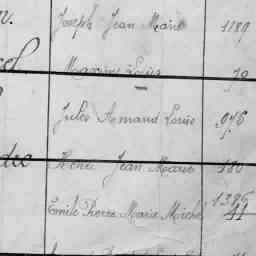 n. Joseph Jean Marie 1189
Louis 79
Jules Armand Louis 976
Henri Jean Marie 180
1395
Emile Pierre Marie Michel 41